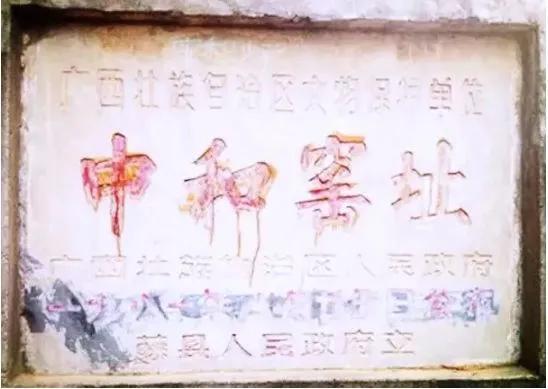 广西壮族自治区文物保护单位
中和窑址
广西壮族自治区人民政府
一九八一年
公布
藤县人民政府立